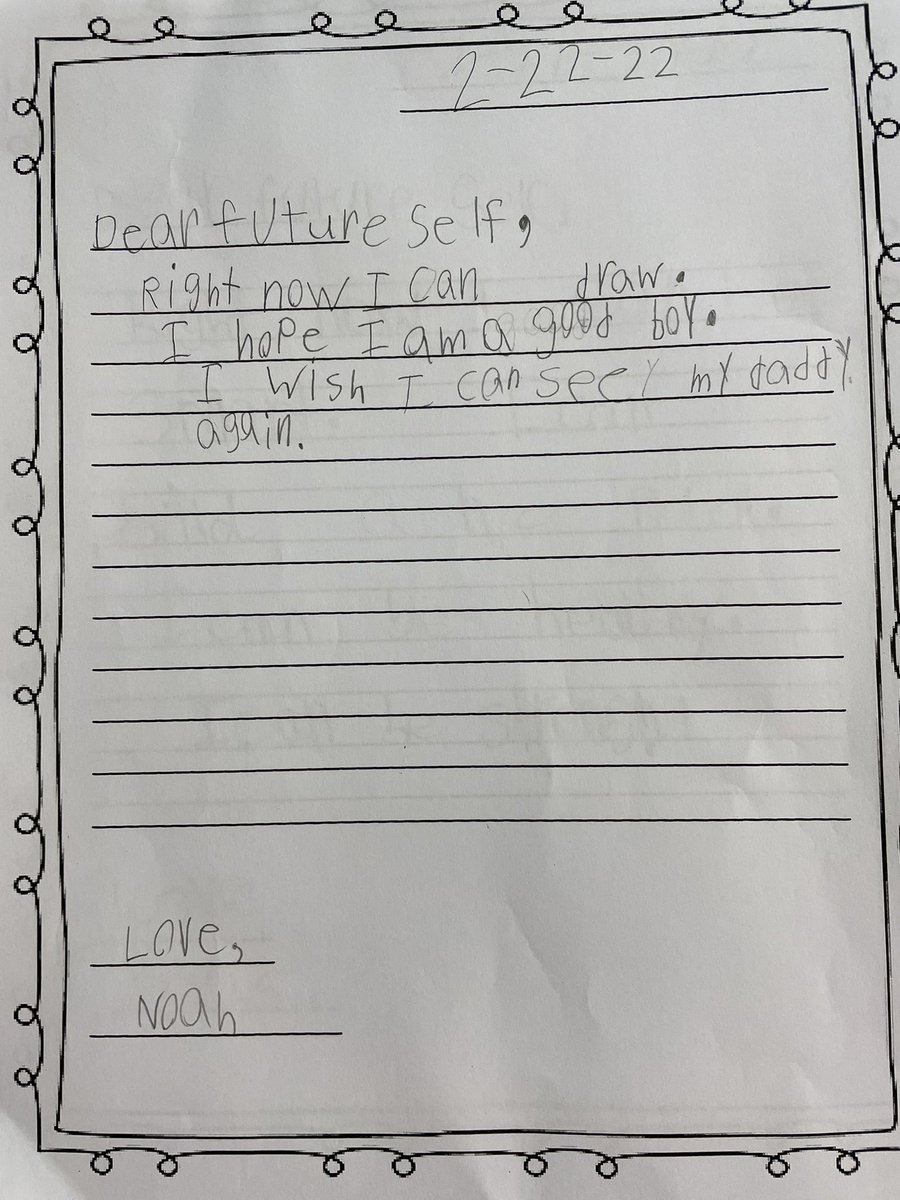 2-22-22
Dear future self,
Right now I can draw.
I hope I am a good boy.
I wish I can see my daddy.
again.
Love,
Noah